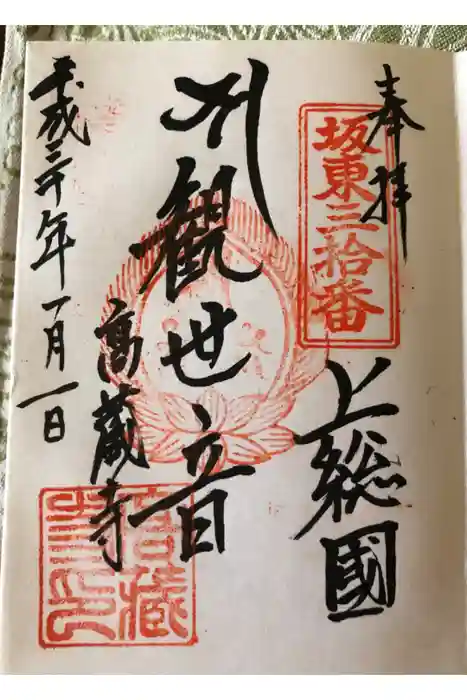 奉拝
坂東三拾番
上総國
観世音
高蔵寺
平成三十年一月一日
高藏
寺印